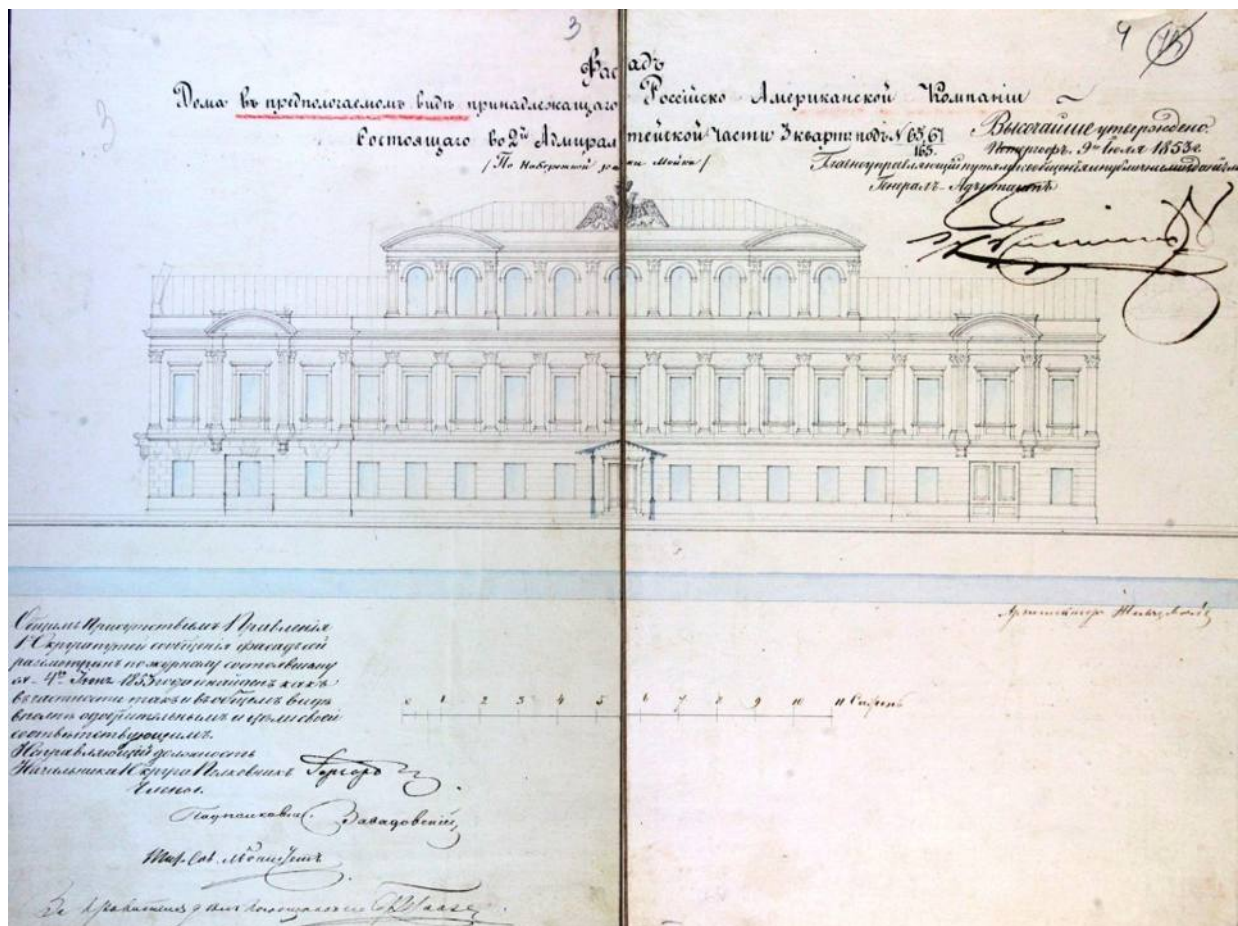 3
4
Фасадъ
Дома въ предпологаемомъ видѣ принадлежащаго Россійско Американской Компаніи
Состоящаго во 2й Адмиралтейской части 3 кварт: подъ N 65, 67
165.
/ По Набережной рѣки Мойки /
Высочайше утверждено.
Петергофъ. 9го Іюля 1853 г.
Главноуправляющій путями сообщенія и публичными зданіями
Генералъ-Адъютантъ
3
Архитекторъ
Общимъ Присутствіемъ Правленія
1 Округа путей сообщенія фасадъ сей
разсмотренъ по журналу состоявшему
4го 1853 года и найденъ какъ
въ частности такъ и въ общемъ видѣ
вполнѣ и цѣли своей
соотвѣтствующимъ.
должность
Начальника 1 Округа Полковникъ
Члены.
Подполковникъ Завадовскій
0 1 2 3 4 5 6 7 8 9 10 11 Сажень